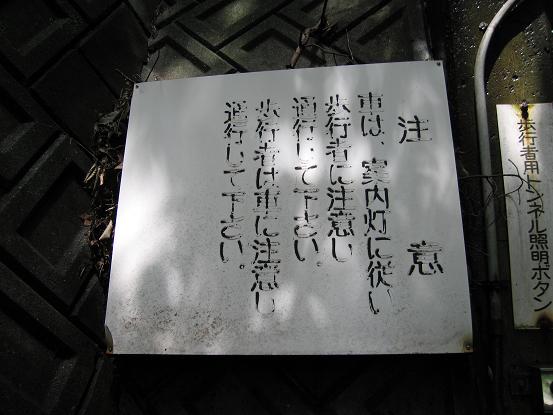 歩行者用トンネル照明ボタン
注意
車は、案内灯に従い
歩行者に注意し
通行して下さい。
歩行者は車に注意し
通行して下さい。